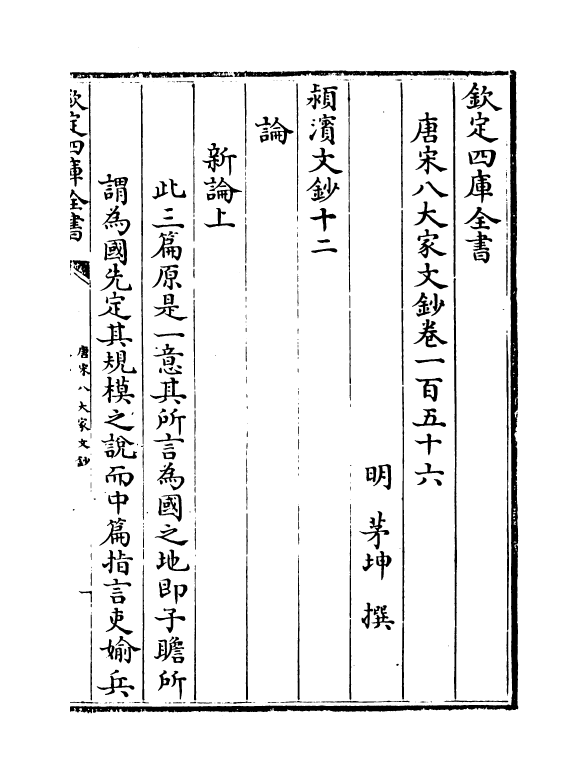 欽定四庫全書
唐宋八大家文鈔卷一百五十六
明 茅坤 撰
潁濱文鈔十二
論
新論上
此三篇原是一意其所言為國之地即子瞻所
謂為國先定其規模之說而中篇指言吏媮兵
欽定四庫全書
唐宋八大家文鈔
一